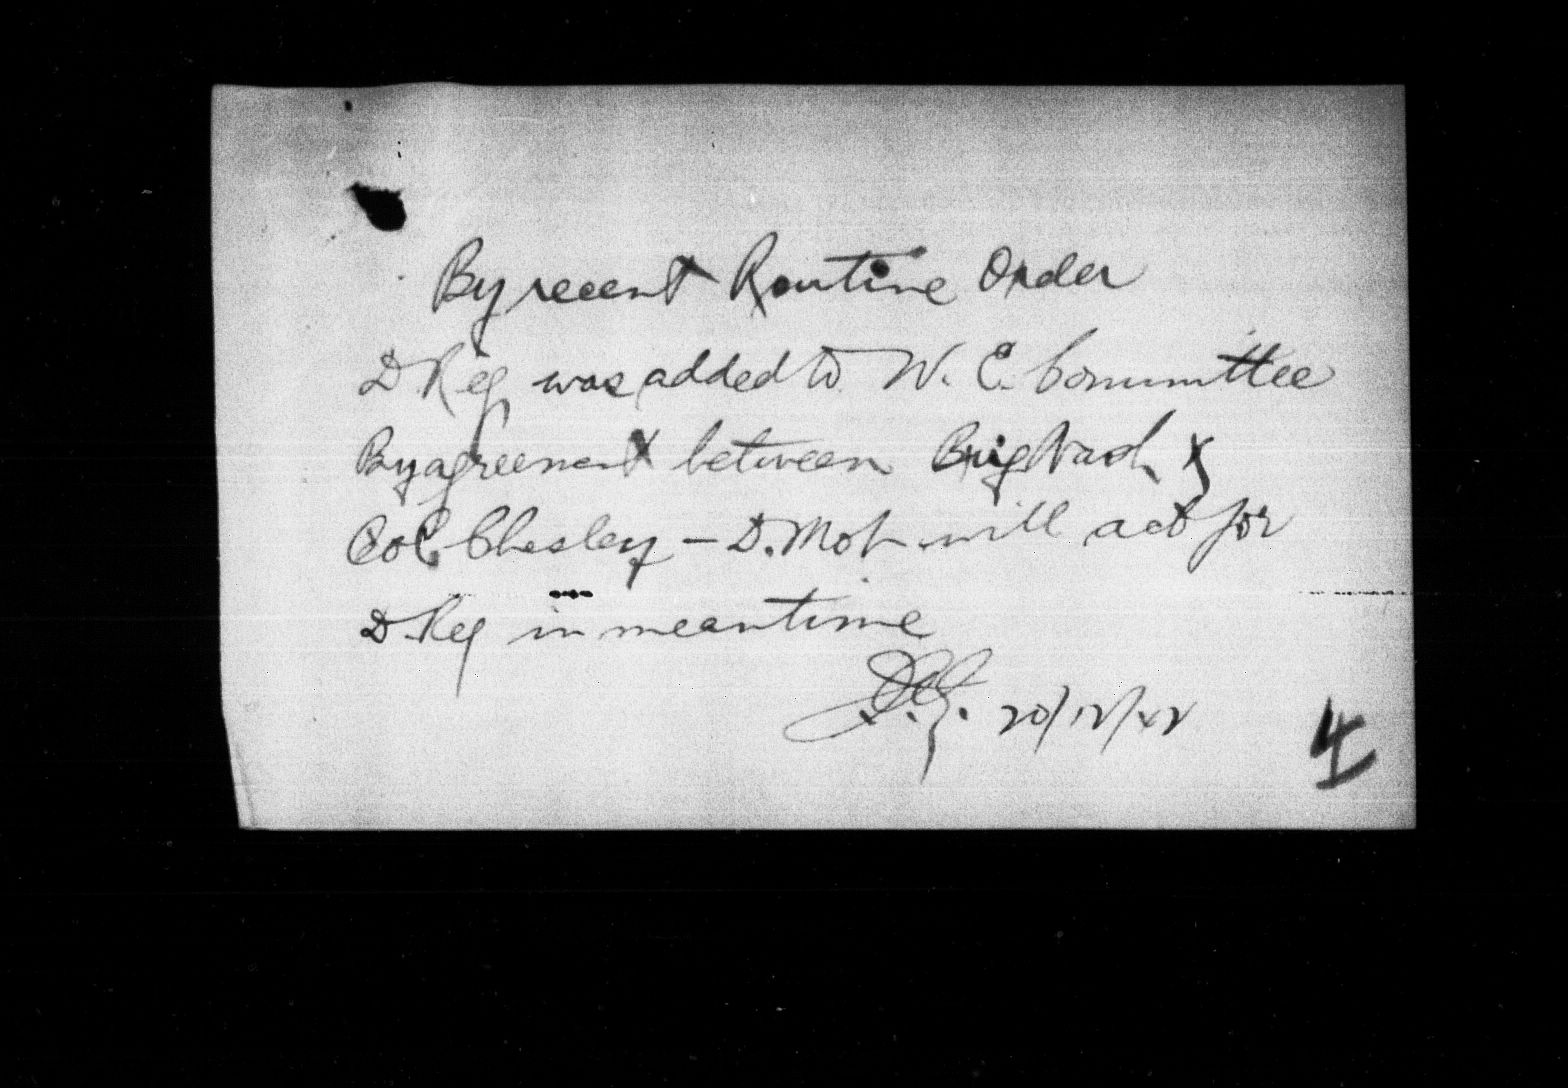 By recent Routine Order
D Reg was added to W. E. Committee
By agreement between Brig &
Col Chesley - D. Mob will act for
D Reg in meantime
20/12/42
4